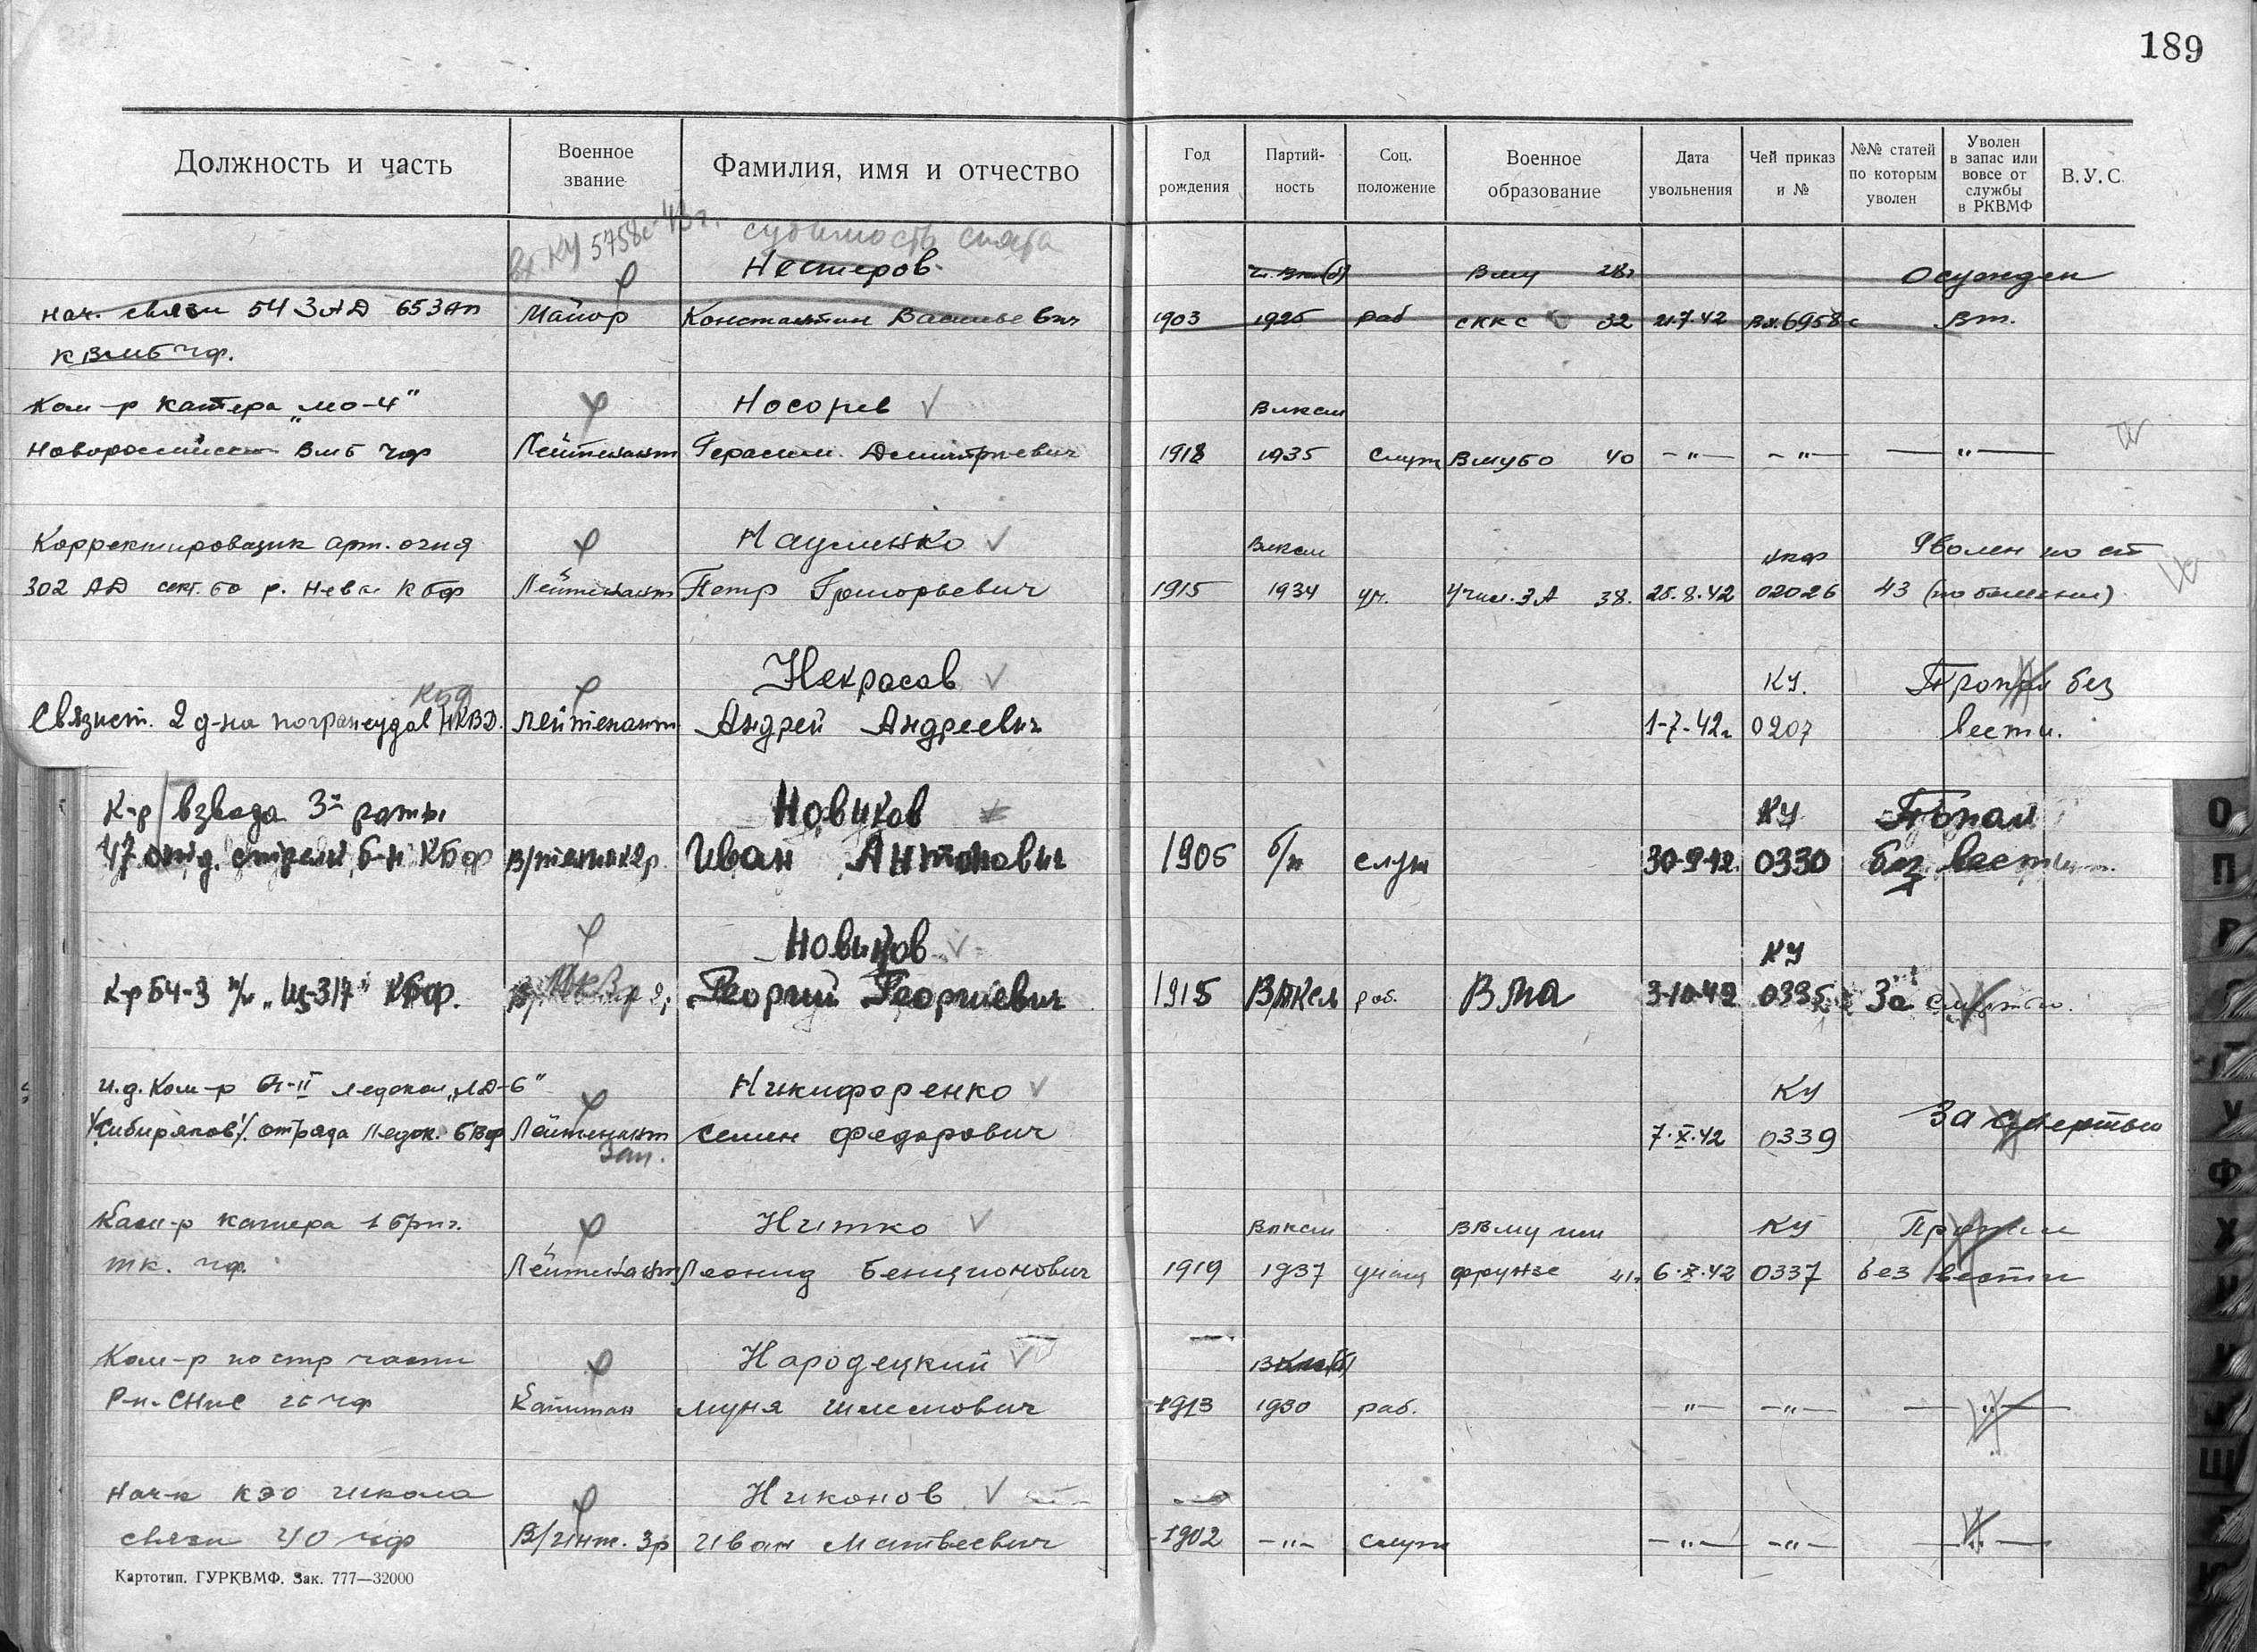 189
Должность и часть
Военное звание
Фамилия, имя и отчество
Год рождения
Партий-ность
Соц. положение
Военное образование
Дата увольнения
Чей приказ и №
№№ статей по которым уволен
Уволен в запас или вовсе от службы в РКВМФ
В.У.С.
вх. КУ 5758с-43г. судимость снята
Нестеров Вму 28г Осужден
нач. связи 54 ЗАД 653ап Майор Константин Васильевич 1903 1925 раб скк с 32 21.7.42 Вх.6958с Вт.
КВМБ ЧФ.
Ком-р катера „МО-4" Носорев Влксм
Новороссийск ВМБ ЧФ Лейтенант Герасим Дмитриевич 1918 1935 Служ ВМУБО 40 -"- -"- -"-
Корректировщик арт. огня Науменко Влксм НКФ Уволен по ст
302 АД сект. БО р. Невы КБФ Лейтенант Петр Григорьевич 1915 1934 уч. Учил. ЗА 38. 25.8.42 02026 43 (по болезни)
КБФ Некрасов КУ. Пропал без
Связист. 2 д-на погрансудов НКВД. Лейтенант Андрей Андреевич 1-7-42г 0207 вести.
К-р взвода 3й роты Новиков КУ Пропал
47 отд. стрелк. б-н КБФ В/техник 2р. Иван Антонович 1905 б/п служ 30-9-42. 0330 без вести
Новиков КУ
К-р БЧ-3 п/л „Щ-317" КБФ. Георгий Георгиевич 1915 Влксм раб. ВМА 3-10-42 0335 За смертью.
И.д. Ком-р БЧ-II ледокол „ЛД-6" Никифоренко КУ
/„Сибиряков"/. отряда Ледок. БВФ Лейтенант Семен Федорович 7.X.42 0339 За смертью
Зап.
Ком-р катера 1 бриг. Нитко Влксм ВВМУ им КУ Пропал
ТК. ЧФ. Лейтенант Леонид Бенционович 1919 1937 учащ Фрунзе 41г 6.X.42 0337 без вести
Ком-р по стр части Народецкий ВКП(б)
Р-н СНиС ЧФ Капитан Муня Шлемович 1913 1930 раб. -"- -"- -"-
Нач-к КЭО школа Никонов
связи ЧФ В/инт. 3р Иван Матвеевич 1902 -"- Служ -"- -"- -"-
Картотип. ГУРКВМФ. Зак. 777—32000
О
П
Р
С
Т
У
Ф
Х
Щ